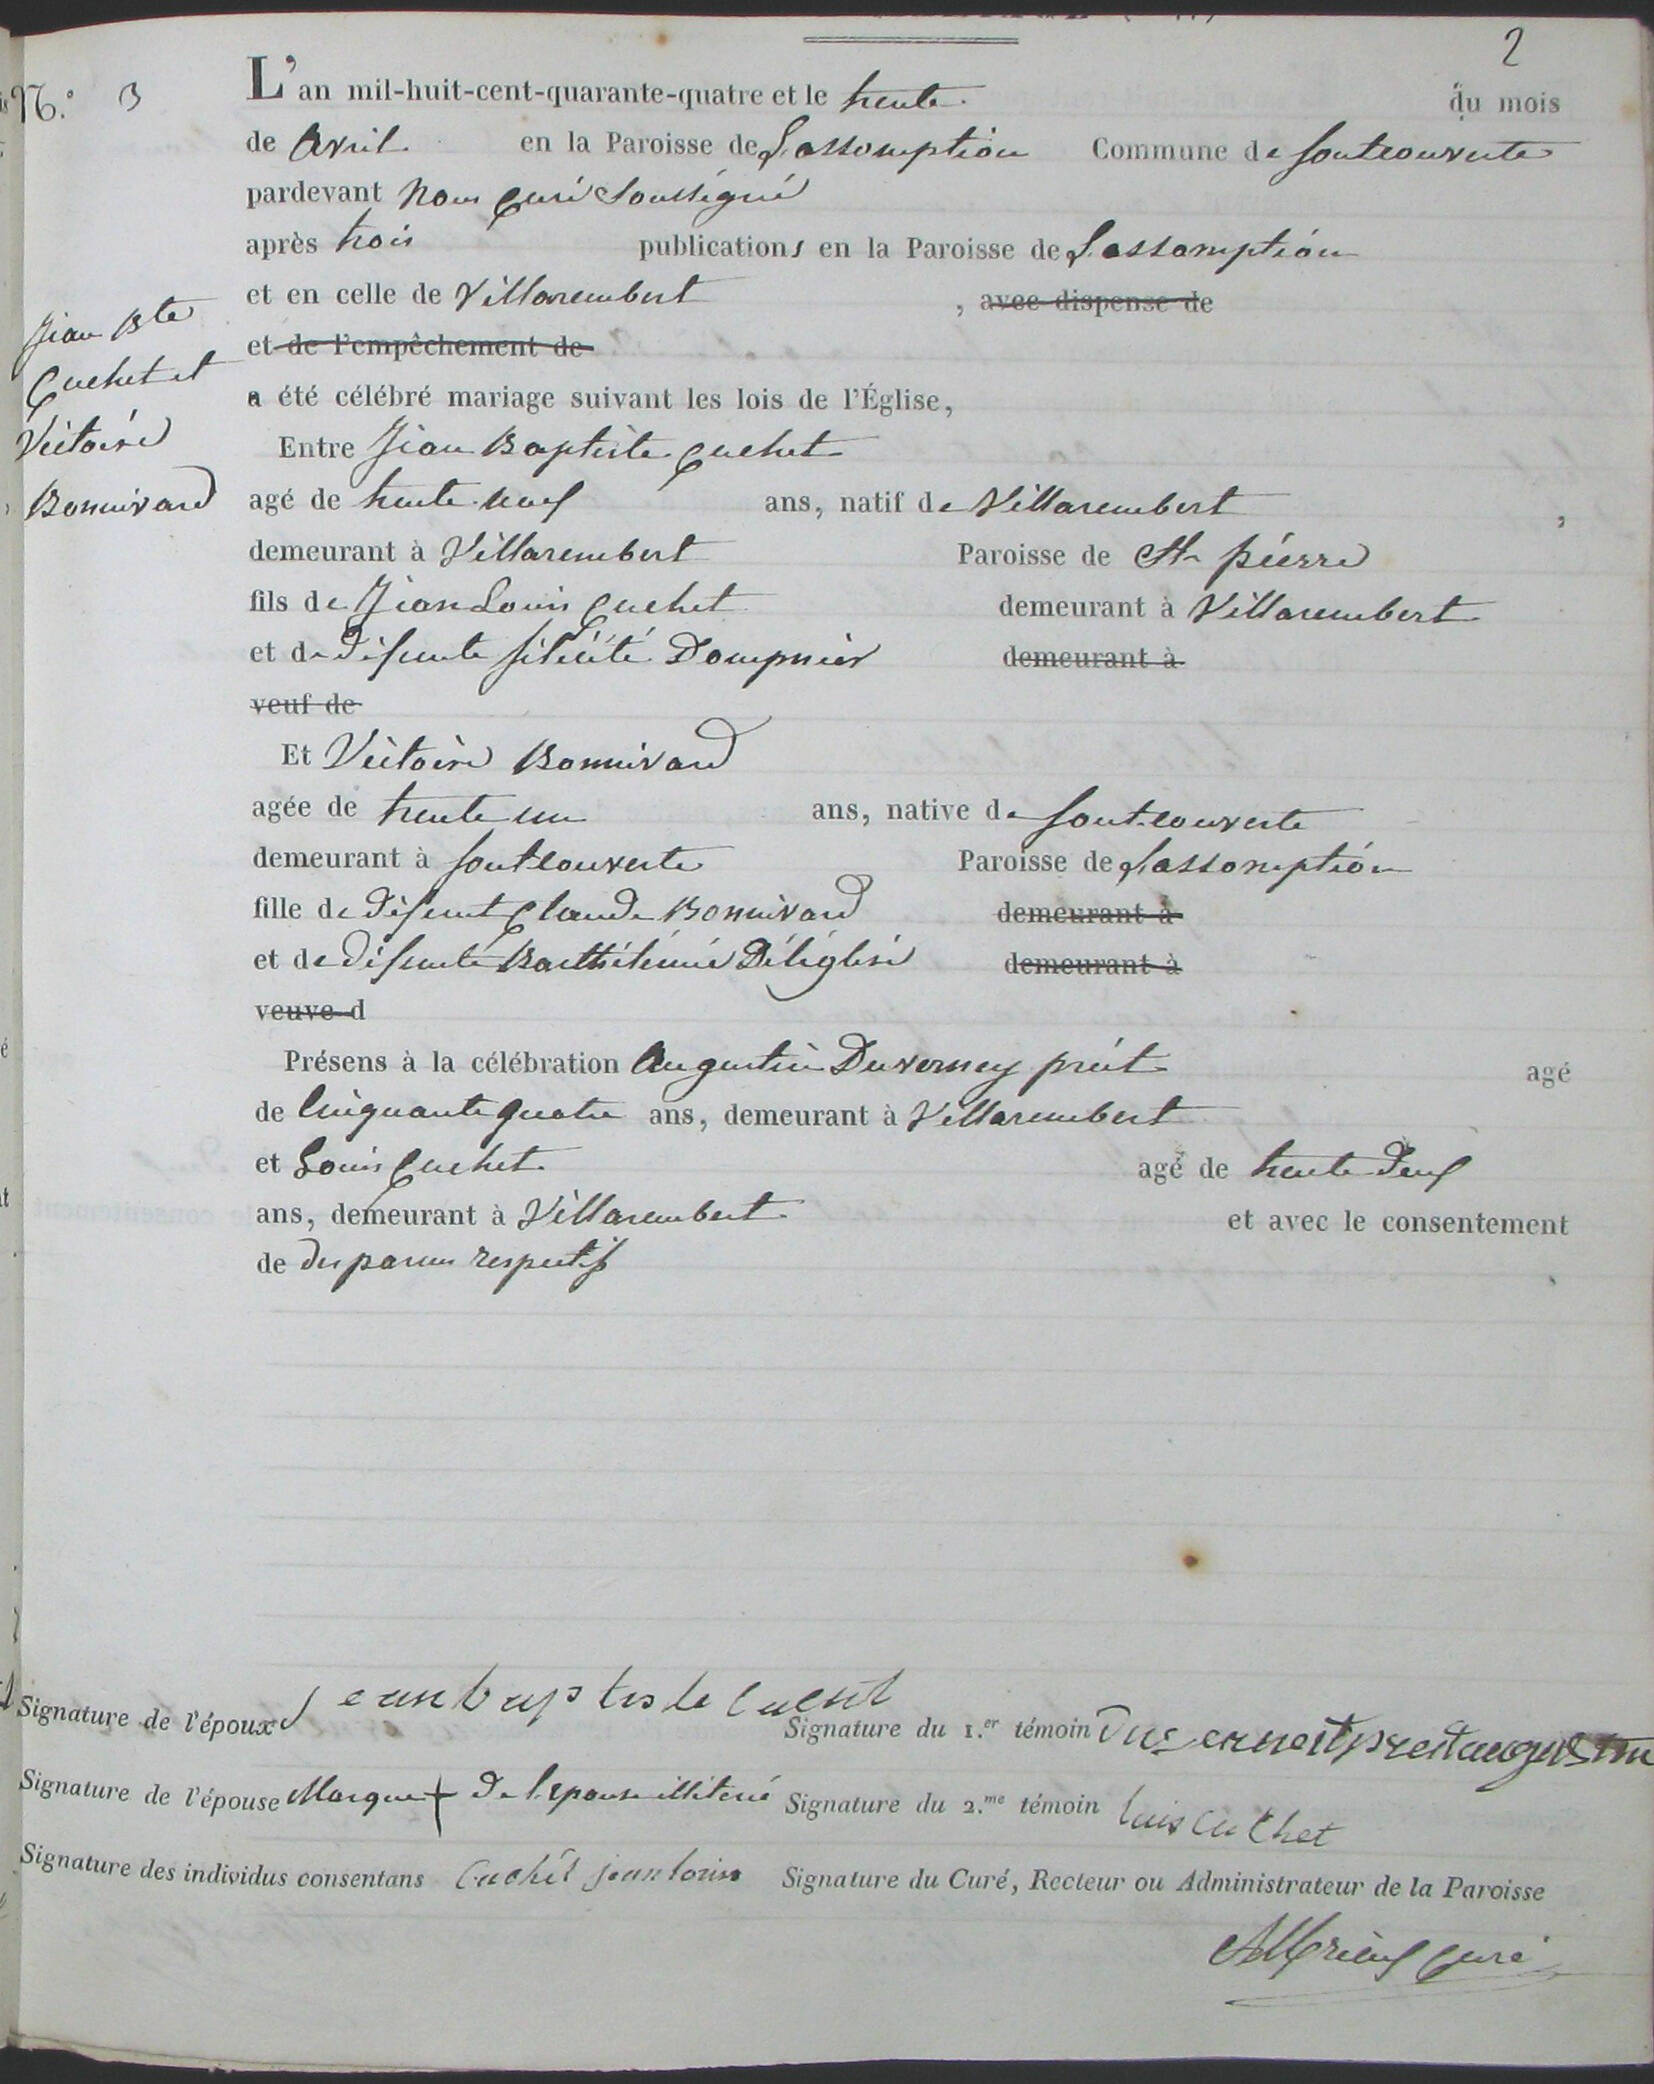 2
N.° 3
L'an mil-huit-cent-quarante-quatre et le trente du mois
de avril en la Paroisse de L'assomption Commune de fontcouverte
pardevant Nous Curé Soussigné
après trois publications en la Paroisse de L'assomption
et en celle de Villarembert , avec dispense de
et de l'empêchement de
a été célébré mariage suivant les lois de l'Église,
Jean Bte
Cuchet et
Victoire
Bonnivard
Entre Jean Baptiste Cuchet
agé de trente neuf ans, natif de Villarembert ,
demeurant à Villarembert Paroisse de St pierre
fils de Jean Louis Cuchet demeurant à Villarembert
et de défunte félicité Dompnier demeurant à
veuf de
Et Victoire Bonnivard
agée de trente un ans, native de fontcouverte
demeurant à fontcouverte Paroisse de L'assomption
fille de défunt Claude Bonnivard demeurant à
et de défunte Barthélémie Déléglise demeurant à
veuve d
Présens à la célébration augustin Duverney prêt agé
de Cinquante quatre ans, demeurant à Villarembert
et Louis Cuchet agé de trente deux
ans, demeurant à Villarembert et avec le consentement
de des parens respectifs
Signature de l'époux Jean baptiste Cuchet
Signature du 1.er témoin
Signature de l'épouse Marque + de l'épouse illiterée
Signature du 2.me témoin luis Cuchet
Signature des individus consentans Cuchet jean louis
Signature du Curé, Recteur ou Administrateur de la Paroisse
curé